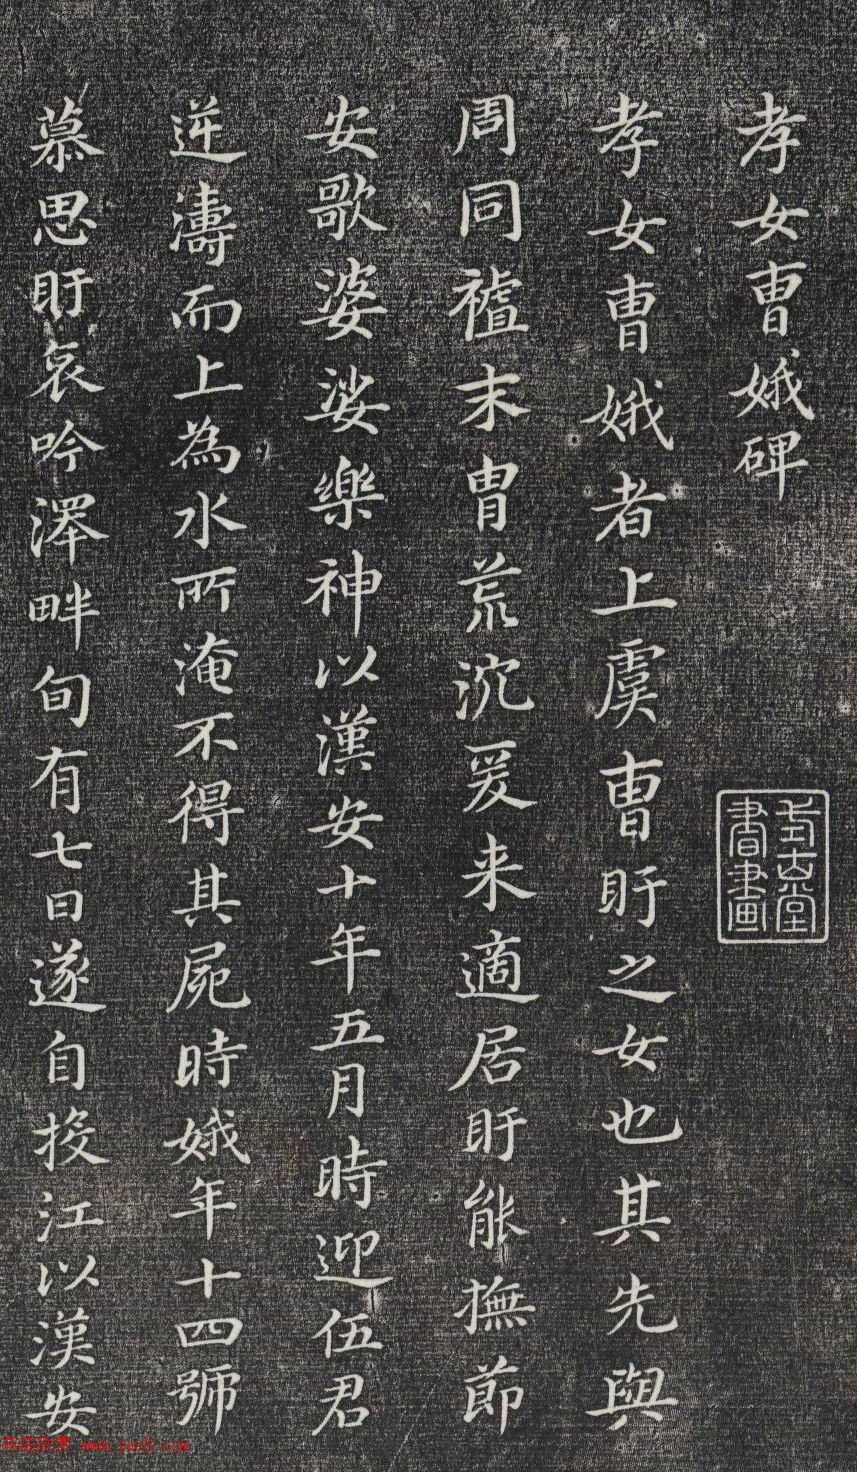 孝女曹娥碑
孝女曹娥者上虞曹盱之女也其先與
周同禮末胄荒沉爰来適居盱能撫節
安歌婆娑樂神以漢安十年五月時迎伍君
逆濤而上為水所淹不得其屍時娥年十四號
慕思盱哀吟澤畔旬有七日遂自投江以漢安
書畫
www.yac8.com